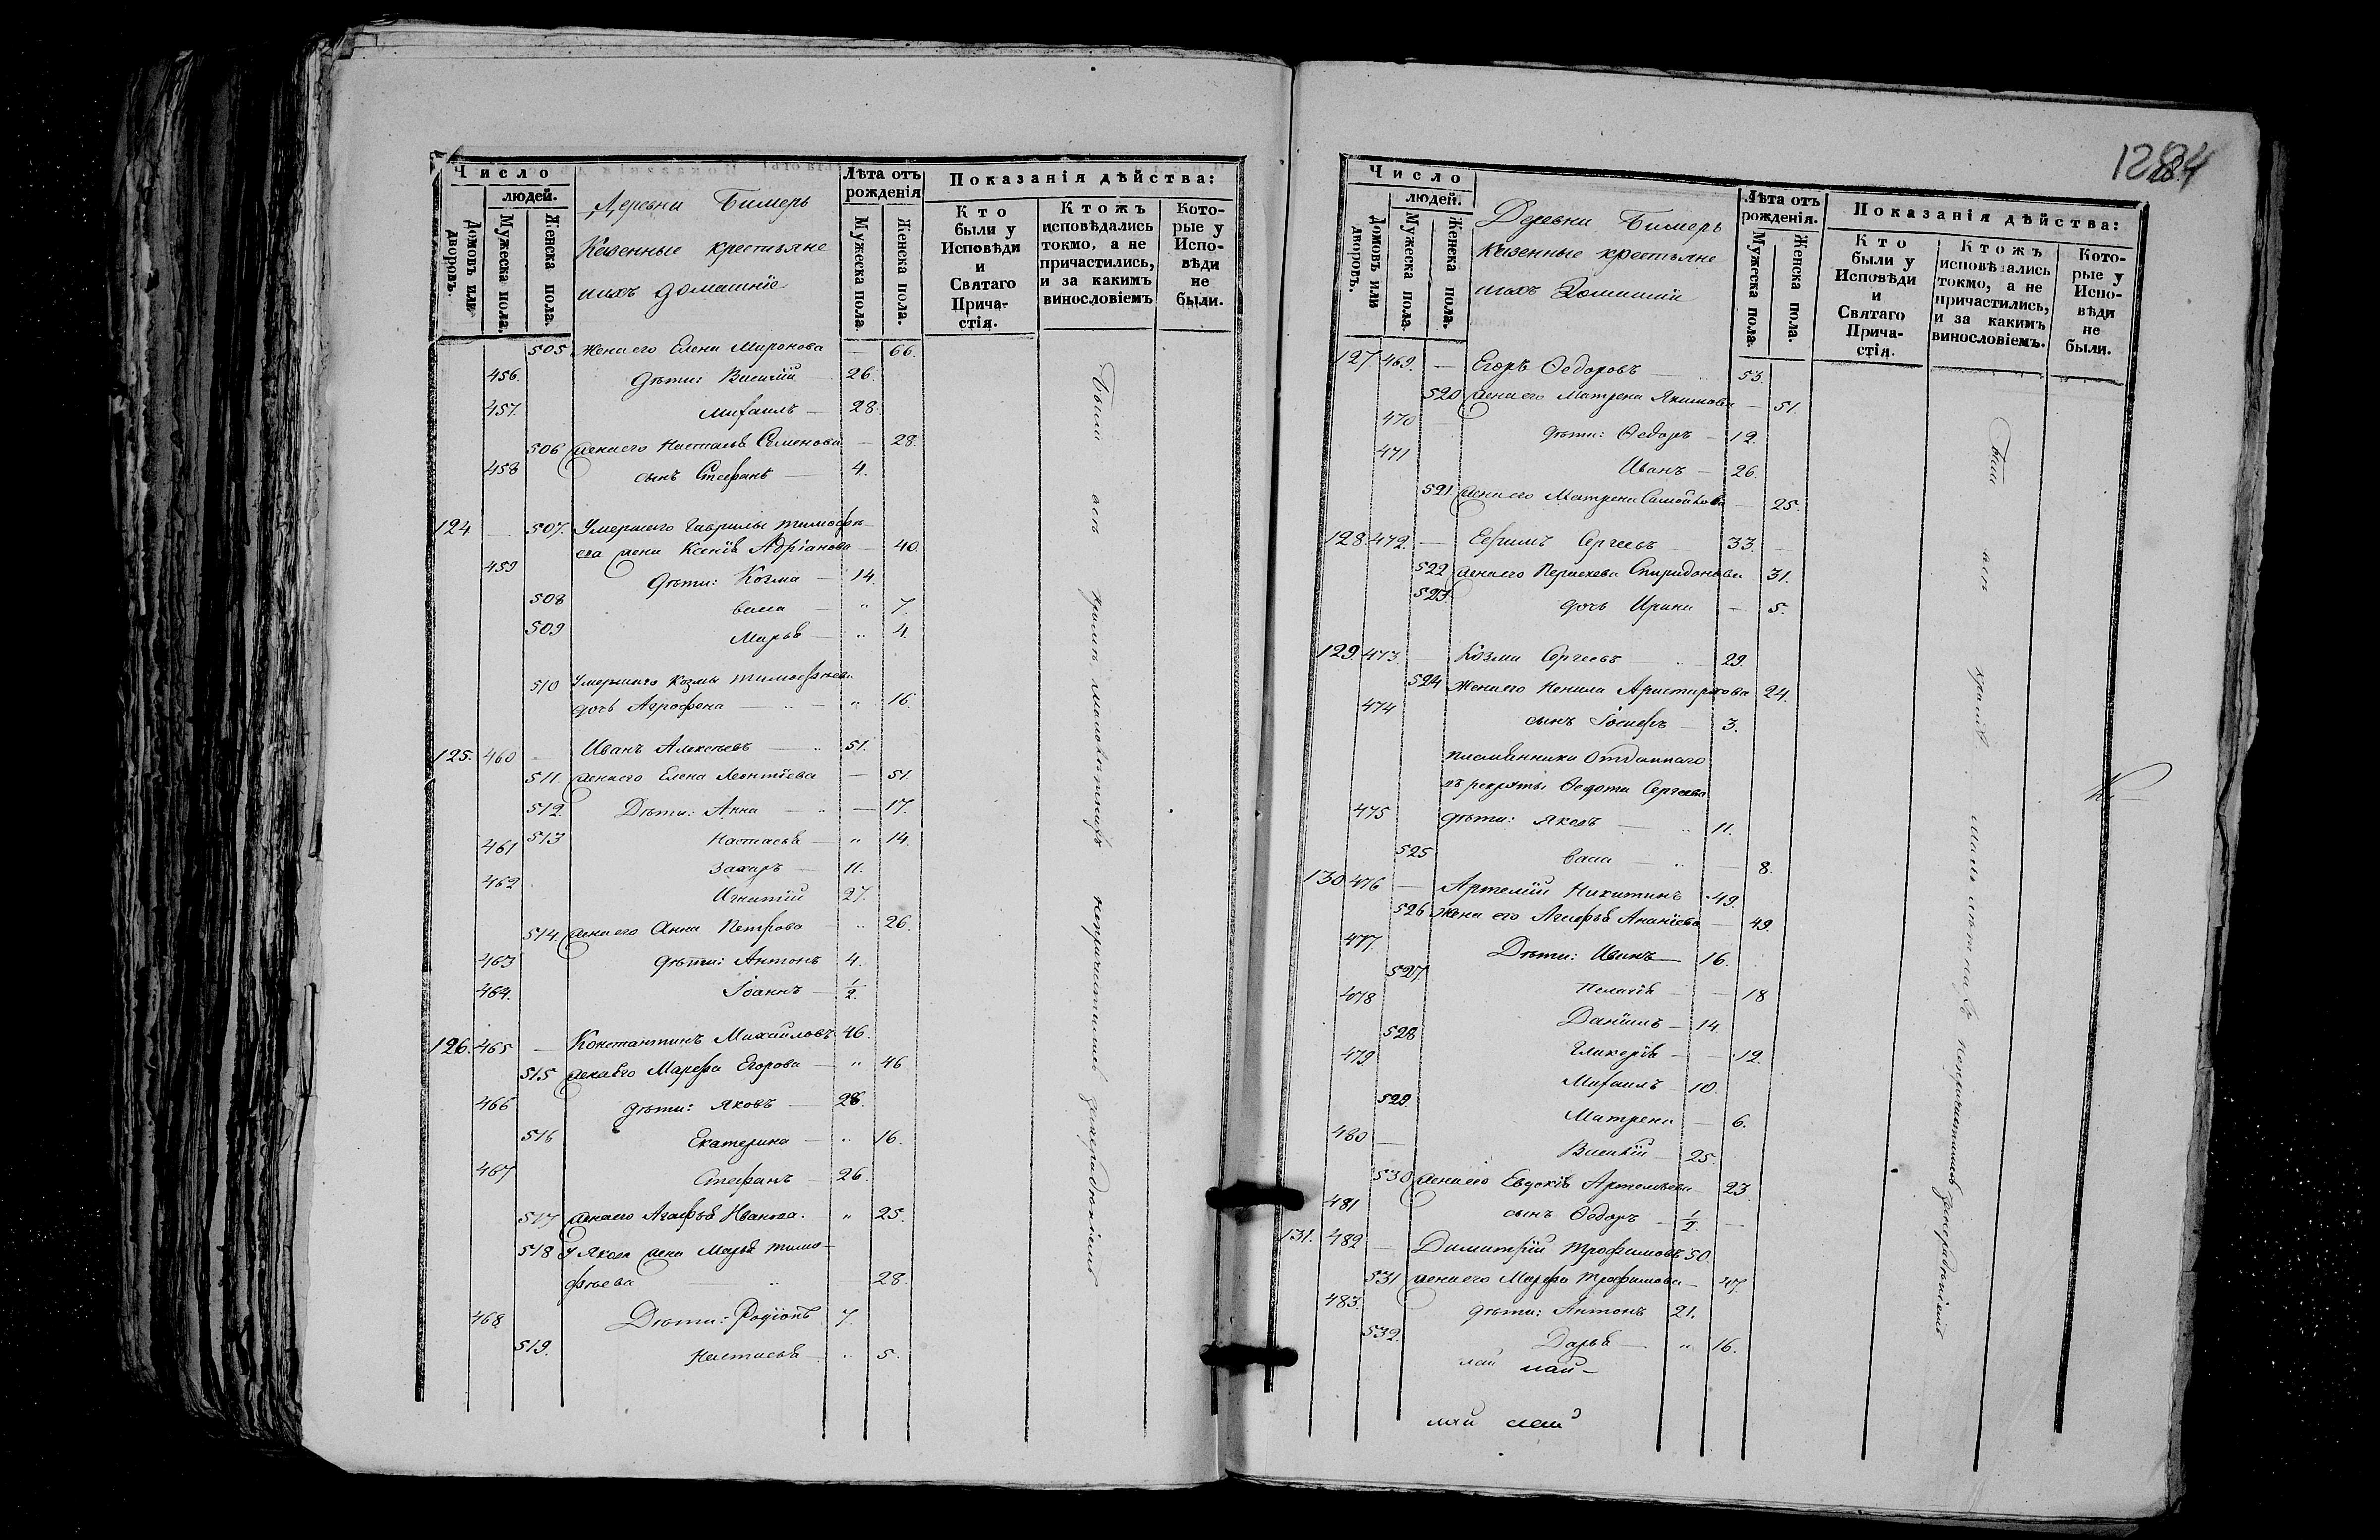 Число
людей.
Домовъ или дворовъ.
Мужеска пола.
Женска пола.
Деревни Бимерь
Казенные крестьяне
ихъ домашніе
Лѣта отъ рожденія
Мужеска пола.
Женска пола.
Показанія дѣйства:
Кто были у Исповѣди и Святаго Прича-стія.
Ктожъ исповѣдались токмо, а не причастились, и за какимъ винословіемъ
Кото-рые у Испо-вѣди не были.
505 Жена его Елена Миронова — 66.
456. дѣти: Василій 26.
457. Михаилъ — 28.
506 жена его Настасья Семенова — 28.
458 сынъ Стефанъ — 4.
124 — 507. Умершаго Гаврилы Тимофѣ-
ева жена Ксенія Адріанова — 40.
459 дѣти: Козма — 14.
508 Васса — " 7.
509 Марья — " 4.
510 Умершаго Козмы Тимофѣева
дочь Агрофена — " 16.
125. 460 — Иванъ Алексѣевъ — 51.
511. жена его Елена Леонтіева — 51.
512. Дѣти: Анна — — 17.
513 Настасья — " 14.
461 Захаръ — 11.
462 Игнатій 27.
514. жена его Анна Петрова " 26.
463 дѣти: Антонъ 4.
464. Іоаннъ — 1/2.
126. 465 — Константинъ Михайловъ 46.
515 жена его Марфа Егорова — " 46.
466 дѣти: Яковъ — 28.
516 Екатерина — " 16.
467 Стефанъ — 26.
517 жена его Агафья Иванова. " 25.
518 У Якова жена Марья Тимо-
фѣева — 28.
468. Дѣти: Родіонъ 7.
519. Настасья " 5.
Были а съ ними малолѣтнихъ непричастилось
1284
Число
людей.
Домовъ или дворовъ.
Мужеска пола.
Женска пола.
Деревни Бимерь
казенные крестьяне
ихъ Домашніе
Лѣта отъ рожденія.
Мужеска пола.
Женска пола.
Показанія дѣйства:
Кто были у Исповѣди и Святаго Прича-стія.
Ктожъ исповѣдались токмо, а не причастились, и за какимъ винословіемъ.
Кото-рые у Испо-вѣди не были.
127. 469. — Егоръ Ѳедоровъ — 53.
520 жена его Матрена Якимова — 51.
470 дѣти: Ѳедоръ — 12.
471 Иванъ — 26.
521. жена его Матрена Самойлова — 25.
128. 472. — Ефимъ Сергеевъ — 33. —
522 жена его Параскева Спиридонова 31.
523. дочь Ирина — 5.
129. 473. — Козма Сергеевъ — 29.
524 Жена его Ненила Аристархова 24.
474 сынъ Іосифъ — 3.
племянники Отданнаго
въ рекруты Ѳедота Сергеева
475 дѣти: Яковъ — 11.
525 Васса — — 8.
130. 476 — Артемій Никитинъ 49.
526 Жена его Агафья Ананіева — 49.
477. Дѣти: Иванъ — 16.
527. Пелагія — — 18
478 Даніилъ — 14.
528 Гликерія — — 12.
479. Михаилъ — 10.
529. Матрена — 6.
480 — Василій — 25.
530 жена его Евдокія Артемьева — 23
481 сынъ Ѳедоръ — 1/2. —
131. 482 — Димитрій Трофимовъ 50.
531 жена его Марфа Трофимова — 47.
483. дѣти: Антонъ 21.
532. Дарья — " 16.